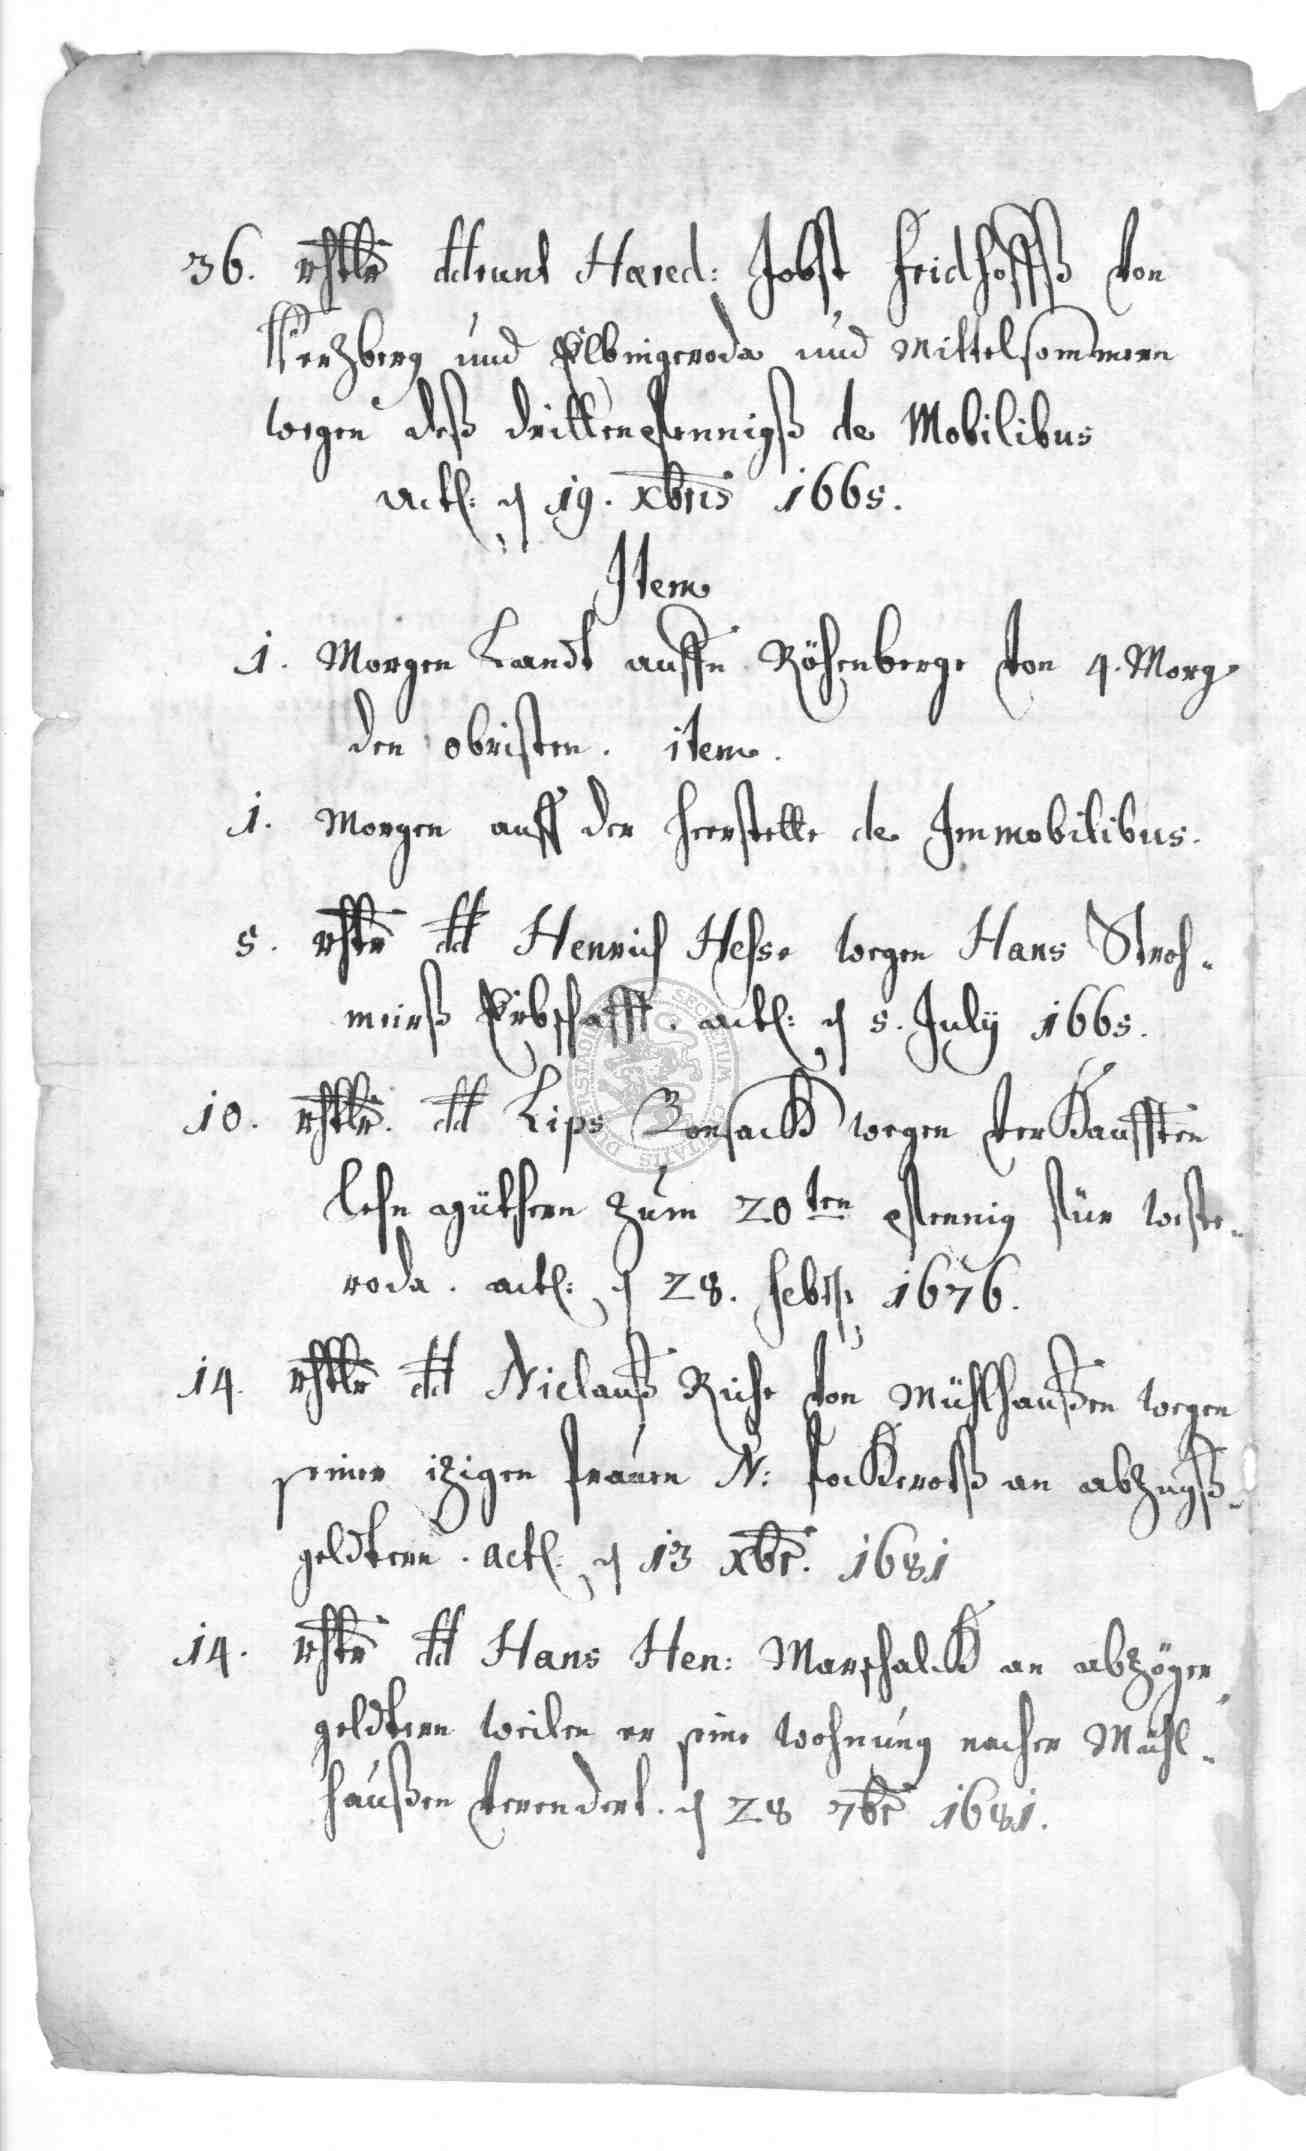 36. rthlr dderunt Hæred: Jobst Fridhoffß von
Hertzberg und Elbingeroda und Mittelsommern
wegen deß dritten pfennigß de Mobilibus
act: d 19. xbris 1665.
Item
1. Morgen Landt auffn Röhenberge von 4. Morg
den obristen. item.
1. Morgen auff der heerstelle de Immobilibus.
5. rthlr dd Henrich Hesse wegen Hans Stroh-
meirß Erbschafft. act: d 5. July 1665.
10. rthlr. dd Lips BonsacK wegen verKaufften
lehn güthern zum 20ten pfennig für Weste-
roda. act: d 28. Febr: 1676.
14. rthlr dd Niclauß Riche von Mühlhaußen wegen
seiner itzigen frauen N: FocKerotß an abzugß-
geldtern. act: d 13 xbr. 1681
14. rthlr dd Hans Hen: MarschalcK an abzöger
geldtern weilen er seine wohnung nacher Mühl-
haußen verendert. d 28 7br 1681.